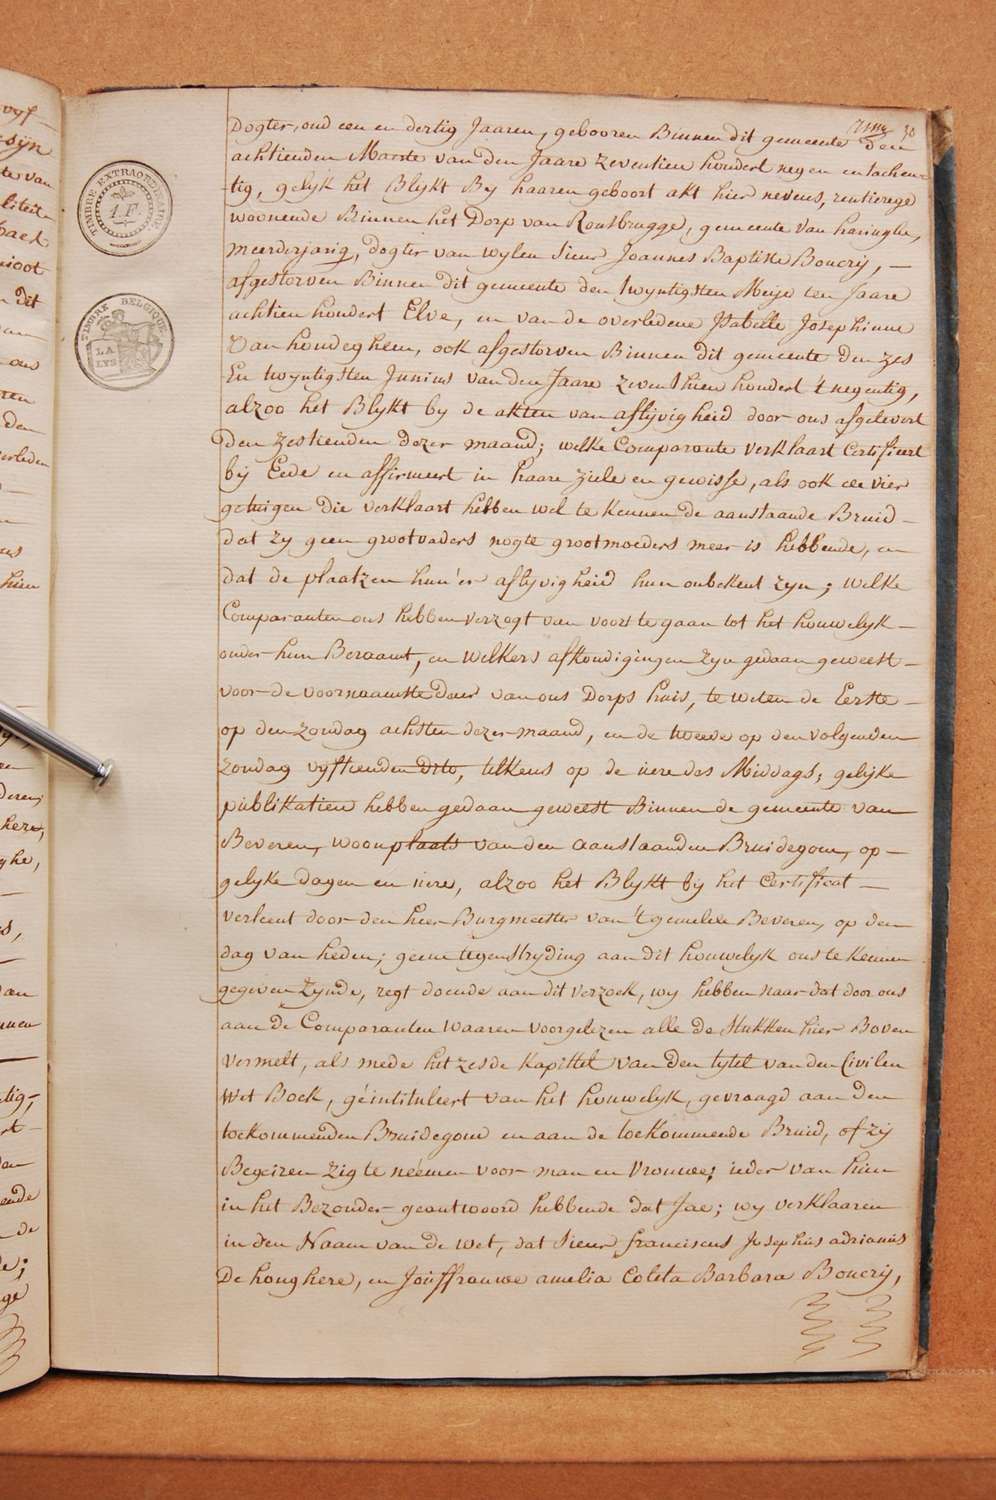 Dogter, oud een en dertig Jaaren, gebooren Binnen dit gemeente den
achtienden Maerte van den Jaare zeventien hondert negen en tachen-
tig, gelyk het Blykt By haaren geboort akt hier nevens, rentierege
woonende Binnen het Dorp van Rousbrugge, gemeente van haringhe,
meerderjarig, dogter van wylen Sieur Joannes Baptiste Boucrij, —
afgestorven Binnen dit gemeente den twyntigsten Meye ten Jaare
achtien hondert Elve, en van de overledene Isabelle Josephinne
Van houdeghem, ook afgestorven Binnen dit gemeente den zes
En twyntigsten Junius van den Jaare zeventhien hondert 't negentig,
alzoo het Blykt by de akten van aflyvigheid door ons afgelevert
den zestienden dezer maand; welke Comparante verklaart Certifieert
bij Eede en affirmeert in haare ziele en gewisse, als ook de vier
getuigen die verklaart hebben wel te kennen de aanstaande Bruid -
dat zy geen grootvaders nogte grootmoeders meer is hebbende, en
dat de plaatzen hun'er aflyvigheid hun onbekent zyn; welke
Comparanten ons hebben verzogt van voort te gaan tot het houwelyk -
onder hun Beraamt, en welkers afkondigingen zyn gedaan geweest -
voor de voornaamste deur van ons Dorps huis, te weten de Eerste -
op den zondag achsten dezer maand, en de tweede op den volgenden
zondag vyftienden Dito, telkens op de uere des Middags; gelyke
publikatien hebben gedaan geweest Binnen de gemeente van
Beveren, woonplaats van den aanstaanden Bruidegom, op -
gelyke dagen en uere, alzoo het Blykt bij het Certificat -
verleent door den heer Burgmeester van 't gemelde Beveren, op den
dag van heden; geene tegenstryding aan dit houwelyk ons te kennen
gegeven Zynde, regt doende aan dit verzoek, wy hebben naar dat door ons
aan de Comparanten waaren voorgelezen alle de stukken hier Boven
vermelt, als mede het zesde kapittel van den tytel van den Civilen
Wet Boek, géintituleert van het houwelyk, gevraagd aan den
toekommenden Bruidegom en aan de toekommende Bruid, of zij
Begeiren zig te neemen voor man en vrouwe; ieder van hun
in het Bezonder geantwoord hebbende dat Jae; wy verklaaren
in den Naam van de wet, dat Sieur franciscus Josephus adrianus
De houghere, en Jouffrouwe amelia Coleta Barbara Boucrij,
TIMBRE EXTRAORDINAIRE
1 F.
TIMBRE BELGIQUE
LA
LYS